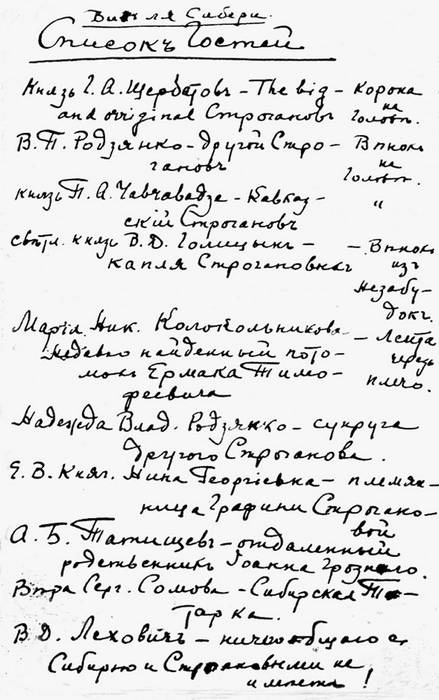 Вил ля Сибери.
Списокъ Гостей
Князь Г. А. Щербатовъ – The big – Корона
and original Строгановъ на
головѣ.
В. П. Родзянко – другой Стро- Вѣнокъ
гановъ на
головѣ.
князь П. А. Чавчавадзе – Кавказ- "
скій Строгановъ
свѣтл. князь В. Д. Голицынъ – – Вѣнокъ
капля Строгановыхъ изъ
незабу-
докъ.
Марія Ник. Колокольникова – Лента
Недавно найденный пото- черезъ
мокъ Ермака Тимо- плечо.
феевича
Надежда Влад. Родзянко – супруга
другого Строганова.
Е. В. Княг. Нина Георгіевна – племян-
ница Графини Строгано-
вой
А. Б. Татищевъ – отдаленный
родственникъ Іоанна Грознаго.
Вѣра Серг. Сомова – Сибирская Та-
тарка.
В. Д. Леховичъ – ничего общаго съ
Сибирью и Строгановыми не
имѣетъ!